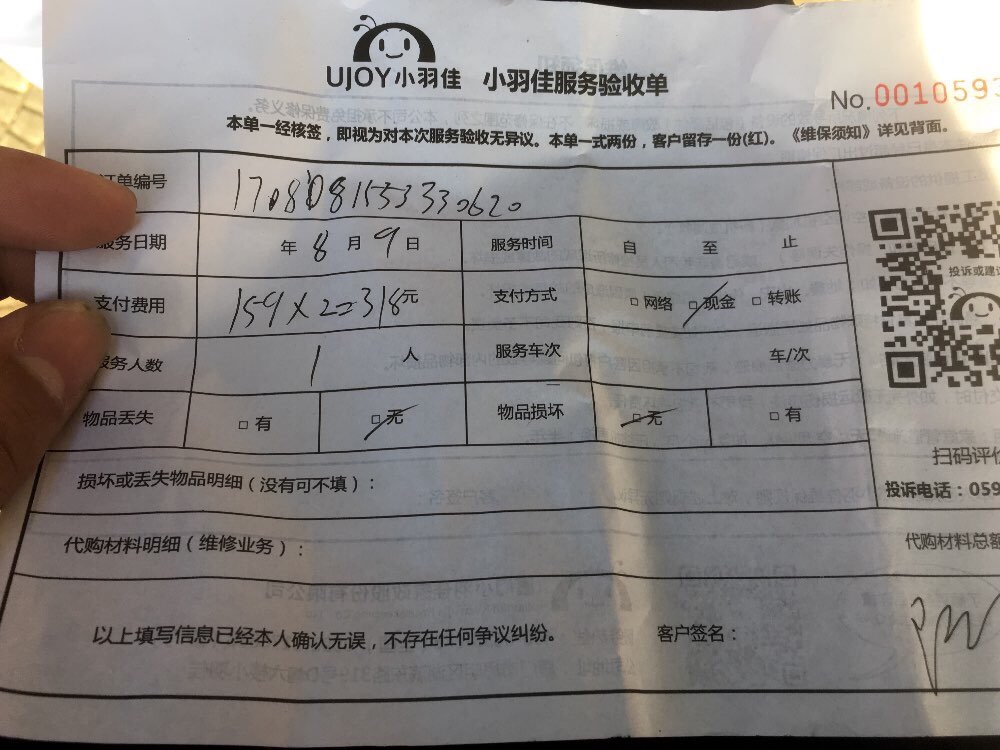 UJOY小羽佳 小羽佳服务验收单
No.001059
本单一经核签，即视为对本次服务验收无异议。本单一式两份，客户留存一份(红)。《维保须知》详见背面。
订单编号 1708081553330620
服务日期 年 8 月 9 日 服务时间 自 至 止
支付费用 159×2=318元 支付方式 □网络 □现金 □转账
服务人数 1 人 服务车次 车/次
物品丢失 □有 □无 物品损坏 □无 □有
投诉或建议
扫码评价
投诉电话：059
损坏或丢失物品明细（没有可不填）：
代购材料明细（维修业务）： 代购材料总额
以上填写信息已经本人确认无误，不存在任何争议纠纷。 客户签名：